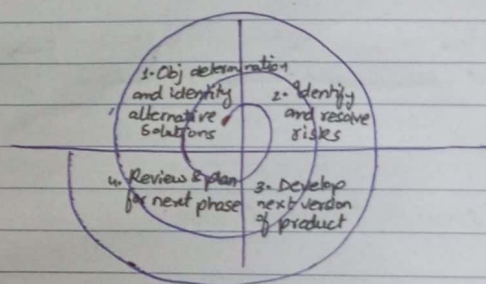 1. Obj determination
and identity
alternative
Solutions
2. Identify
and resolve
risks
3. Develop
next version
of product
4. Review & plan
for next phase